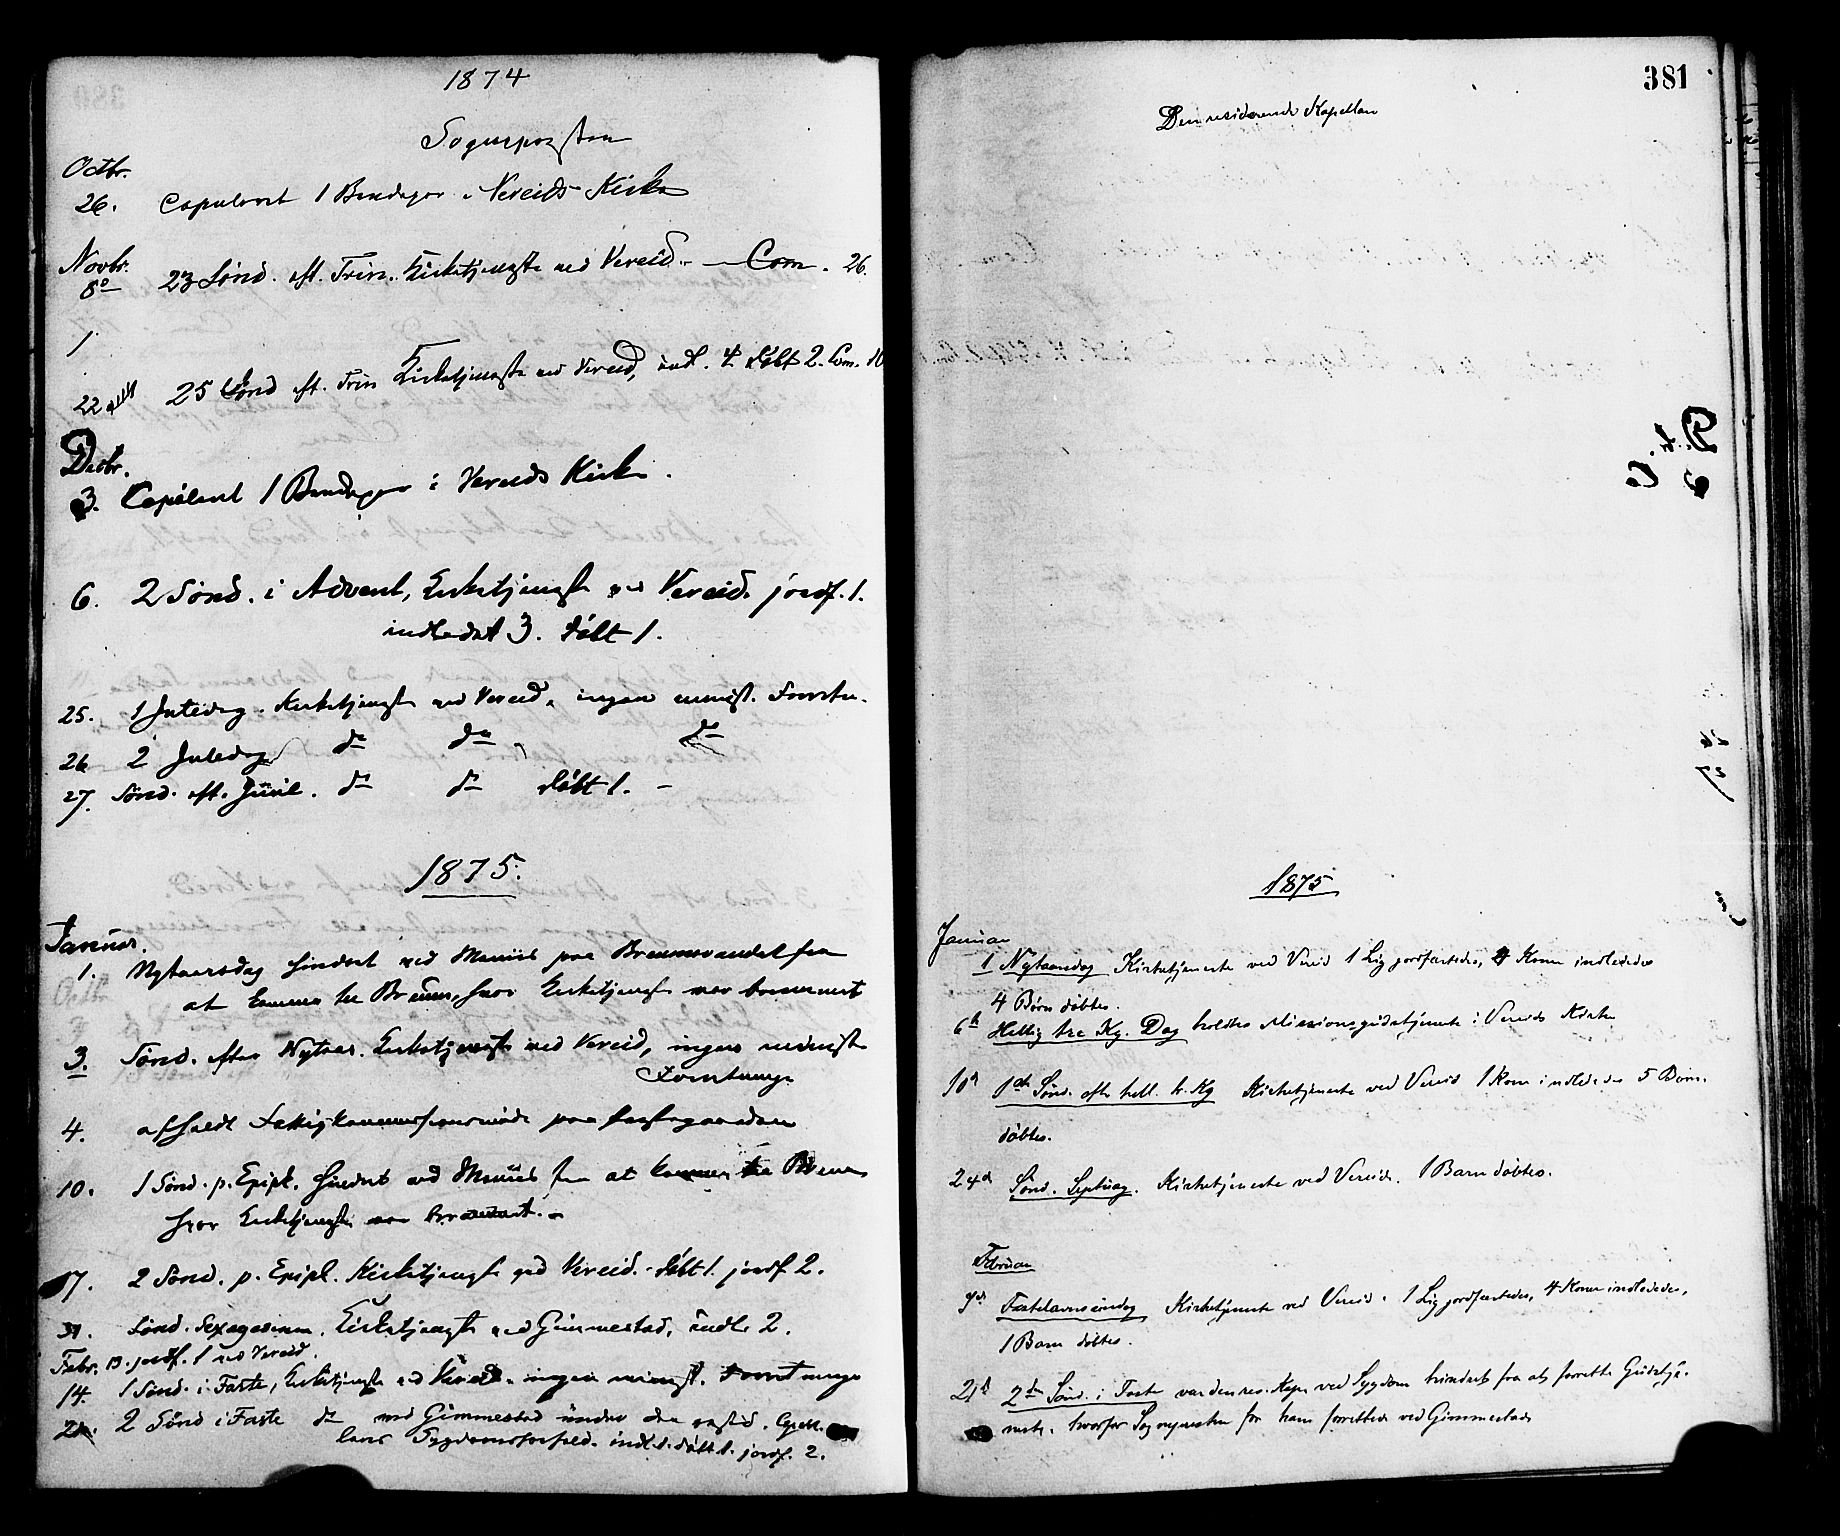 1874
Sognepræsten
Octbr.
26. Copuleret 1 Brudepar i Vereids Kirke
Novbr.
8de 23 Sønd. eft. Trin. Kirketjeneste ved Vereid. — Com. 26.
1
22 25 Sønd eft. Trin Kirketjeneste ved Vereid, indl. 4 døbt 2. Com. 10
Decbr.
3. Copuleret 1 Brudepar i Vereids Kirke.
6. 2 Sønd. i Advent, Kirketjeneste ved Vereid. jordf. 1.
indledet 3. døbt 1.
25. 1 Juledag. Kirketjeneste ved Vereid, ingen minist. Forretn.
26 2 Juledag do do do
27. Sønd. eft. Juul. do do døbt 1. —
1875.
Januar.
1. Nytaarsdag hindret ved Menuis paa Bremsvandet fra
at komme til Bremn, hvor Kirketjeneste var berammet
3. Sønd. efter Nytaar. Kirketjeneste ved Vereid, ingen minist.
Forretninge
4. afholdt Fattigkommissionsmøde paa Præstegaarden
10. 1 Sønd. p. Epiph. hindret ved Menuis fra at komme til Bremn
hvor Kirketjeneste var berammet. —
17. 2 Sønd. p. Epiph. Kirketjeneste ved Vereid. døbt 1. jordf 2.
31. Sønd. Sexagesima. Kirketjeneste ved Gimmestad, indl. 2.
Febr. 13. jordf. 1 ved Vereid.
14. 1 Sønd. i Faste, Kirketjeneste ved Vereid. ingen minist. Forretninge
21. 2 Sønd i Faste do ved Gimmestad under den resid. Capel-
lans Sygdomsforfald. indl. 1. døbt 1. jordf. 2.
381
Den residerende Kapellan
1875
Januar
1 Nytaarsdag Kirketjeneste ved Vereid 1 Lig jordfæstedes, 4 Koner indlededes
4 Børn døbtes.
6te Hellig tre Kg. Dag holdtes Missionsgudstjeneste i Vereids Kirke
10de 1ste Sønd. efter hell. tr. Kg Kirketjeneste ved Vereid 1 Kone indlededes 5 Børn
døbtes.
24de Sønd. Septuag. Kirketjeneste ved Vereid. 1 Barn døbtes.
Februar
7de Fastelavnssøndag Kirketjeneste ved Vereid. 1 Lig jordfæstedes, 4 Koner indlededes,
1 Barn døbtes.
21de 2den Sønd. i Faste var den res. Kap. ved Sygdom hindret fra at forrette Gudstje-
neste, hvorfor Sognepræsten for ham forrettede ved Gimmestad